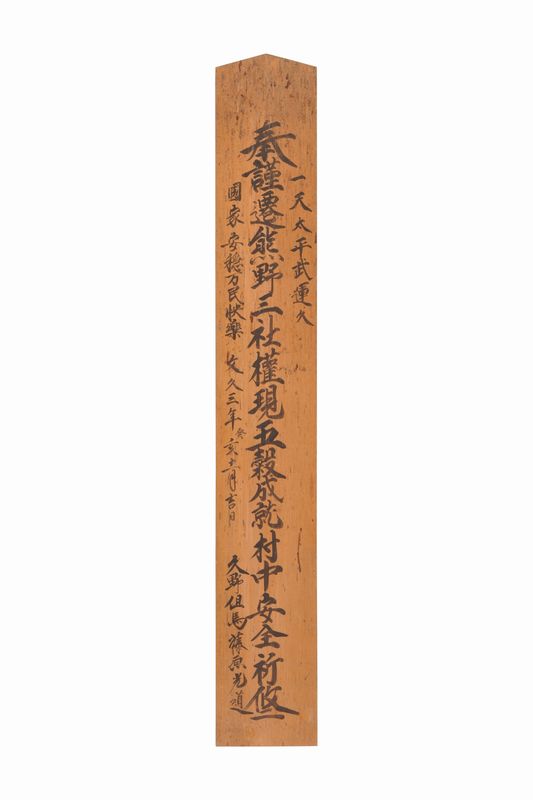 一天太平武運久
奉謹遷熊野三社權現五穀成就村中安全祈攸
國家安穏万民快樂 文久三年癸亥十一月吉日 久野但馬藤原光道